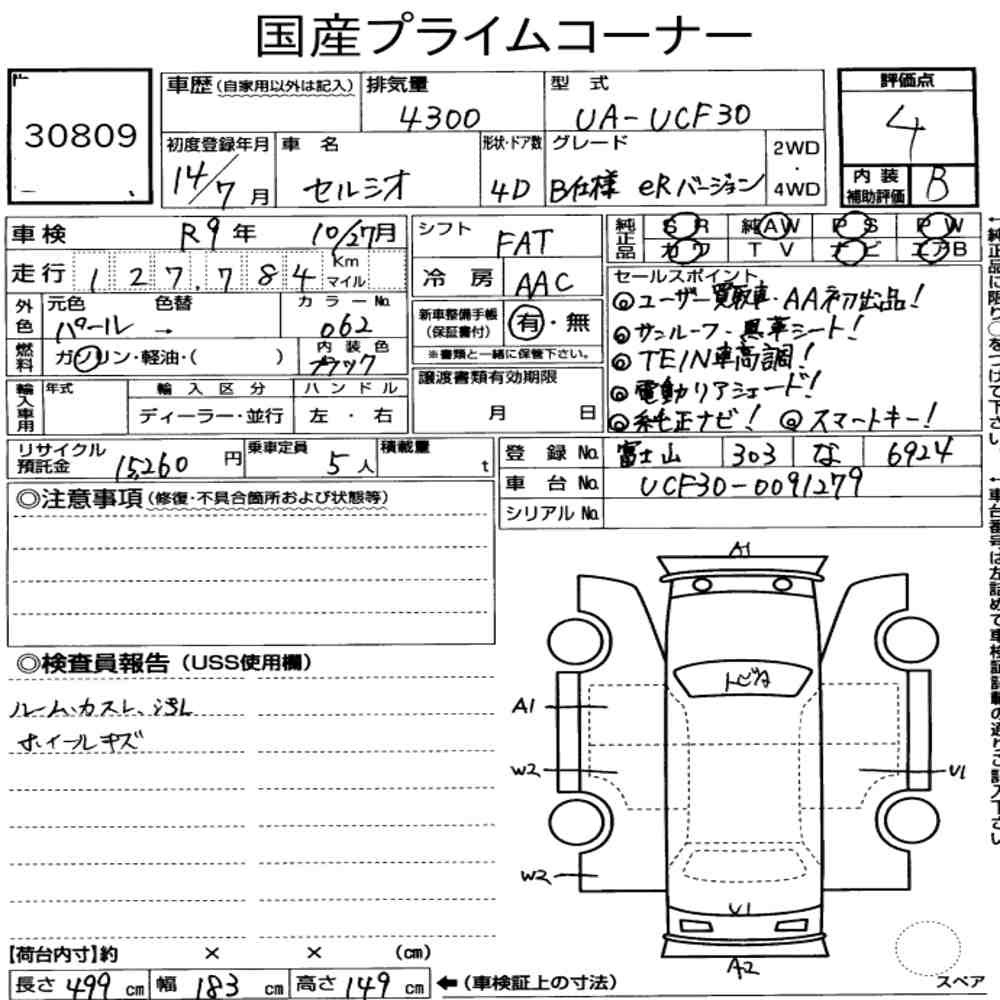 国産プライムコーナー
30809
車歴(自家用以外は記入) 排気量 4300 型式 UA-UCF30
評価点 4
内装補助評価 B
初度登録年月 14/7月 車名 セルシオ 形状・ドア数 4D グレード B仕様 eRバージョン 2WD・4WD
車検 R9年 10/27月
走行 127,784 Km マイル
外色 元色 パール 色替 → カラーNo. 062
燃料 ガソリン・軽油・( ) 内装色 ブラック
輸入車用 年式 輸入区分 ディーラー・並行 ハンドル 左・右
シフト FAT
冷房 AAC
新車整備手帳(保証書付) 有・無
※書類と一緒に保管下さい。
譲渡書類有効期限 月 日
純正品 SR 純AW PS PW
カワ TV ナビ エアB
セールスポイント
◎ユーザー買取車・AA初出品!
◎サンルーフ・黒革シート!
◎TEIN車高調!
◎電動リアシェード!
◎純正ナビ! ◎スマートキー!
リサイクル預託金 15,260円 乗車定員 5人 積載量 t
登録No. 富士山 303 な 6924
車台No. UCF30-0091279
シリアルNo.
◎注意事項(修復・不具合箇所および状態等)
◎検査員報告(USS使用欄)
ルーム、カスレ、汚レ
ホイールキズ
A1
トビ
A1
W2
U1
W2
U1
A2
スペア
【荷台内寸】約 × × (cm)
長さ 499cm 幅 183cm 高さ 149cm ←(車検証上の寸法)